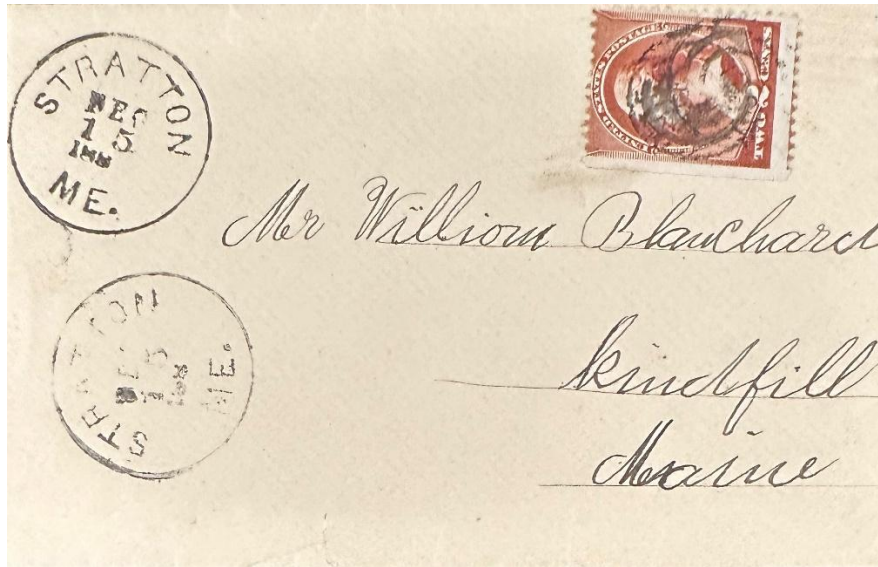 STRATTON
DEC
15
188
ME.
UNITED STATES POSTAGE
TWO 2 CENTS
Mr William Blanchard
kindfill
Maine
STRATTON
15
ME.